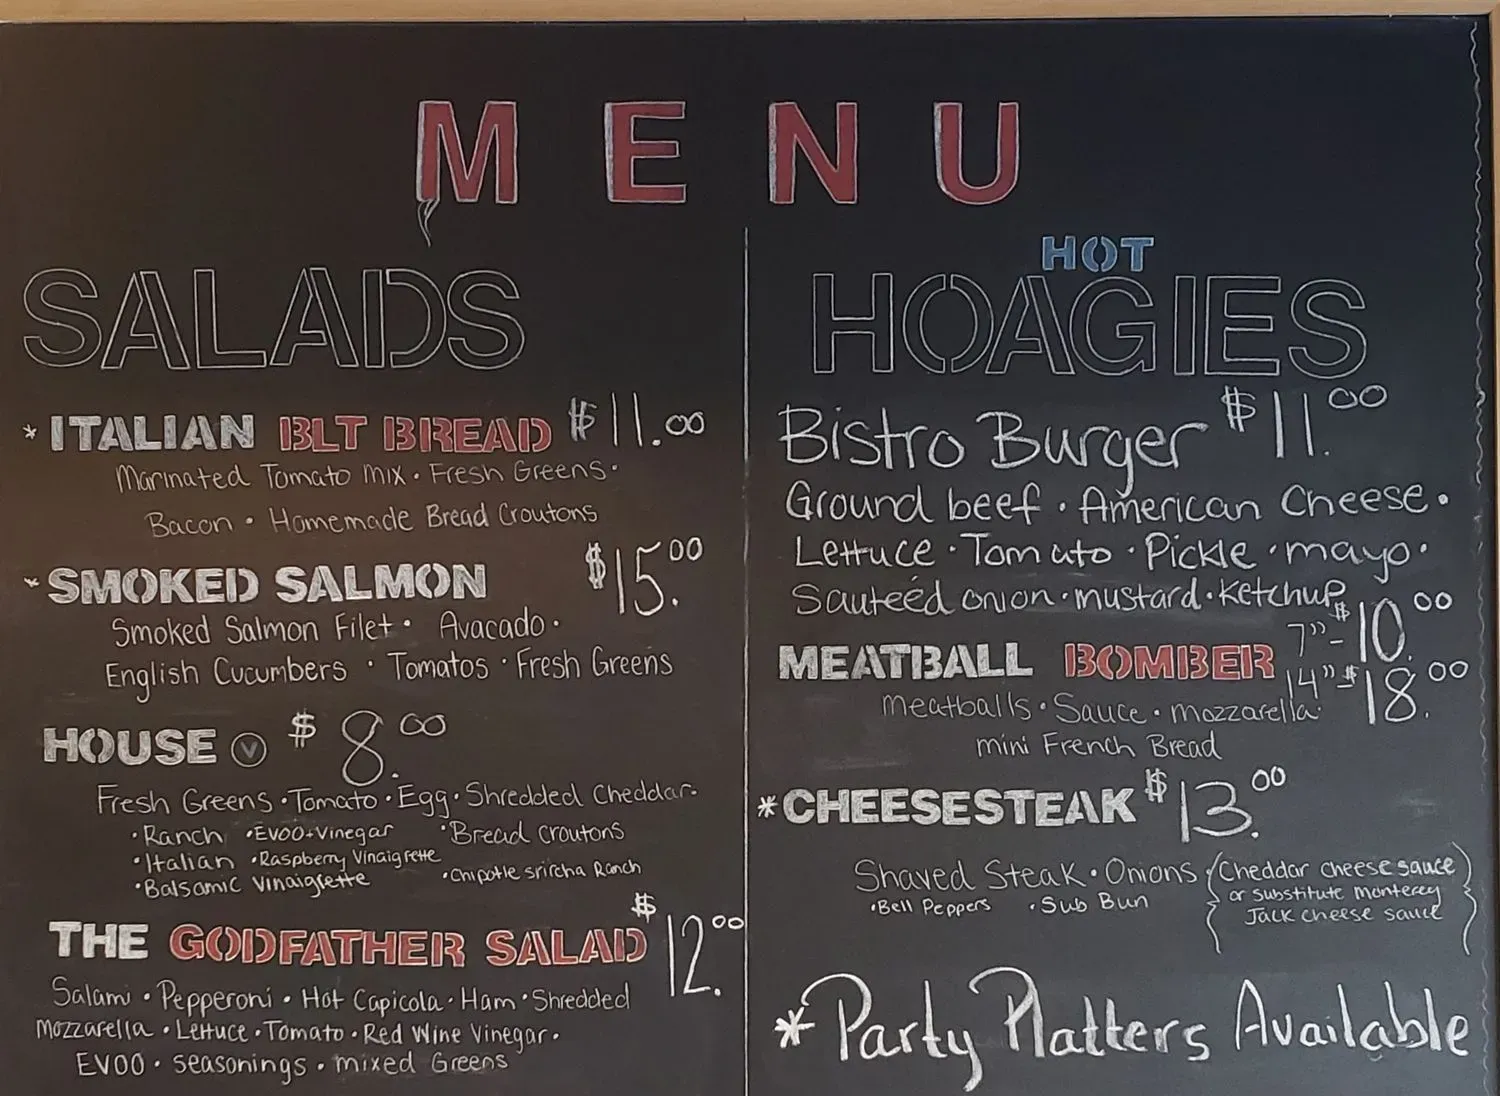 MENU
SALADS
* ITALIAN BLT BREAD $11.00
Marinated Tomato Mix · Fresh Greens ·
Bacon · Homemade Bread Croutons
* SMOKED SALMON $15.00
Smoked Salmon Filet · Avacado ·
English Cucumbers · Tomatos · Fresh Greens
HOUSE V $8.00
Fresh Greens · Tomato · Egg · Shredded Cheddar ·
· Ranch · EVOO + Vinegar · Bread Croutons
· Italian · Raspberry Vinaigrette
· Balsamic Vinaigrette · Chipotle sriricha Ranch
THE GODFATHER SALAD $12.00
Salami · Pepperoni · Hot Capicola · Ham · Shredded
Mozzarella · Lettuce · Tomato · Red Wine Vinegar ·
EVOO · seasonings · mixed Greens
HOT
HOAGIES
Bistro Burger $11.00
Ground beef · American Cheese ·
Lettuce · Tomato · Pickle · mayo ·
Sauteéd onion · mustard · Ketchup
7" - $10.00
MEATBALL BOMBER 14" - $18.00
meatballs · Sauce · mozzarella ·
mini French Bread
* CHEESESTEAK $13.00
Shaved Steak · Onions · (Cheddar cheese sauce
or substitute monterey
Jack cheese sauce)
· Bell Peppers · Sub Bun
* Party Platters Available